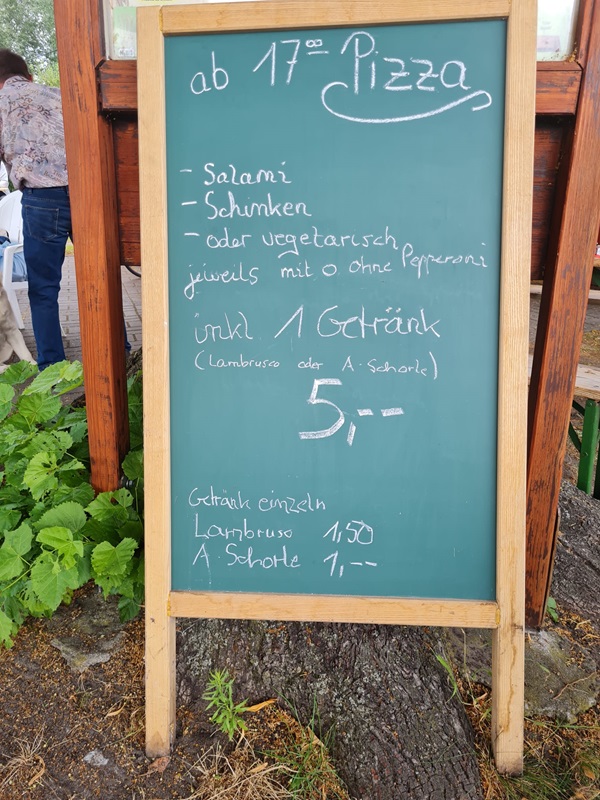 ab 17⁰⁰ Pizza
- Salami
- Schinken
- oder vegetarisch
jeweils mit o ohne Pepperoni
inkl 1 Getränk
(Lambrusco oder A.Schorle)
5,--
Getränk einzeln
Lambruso 1,50
A.Schorle 1,--